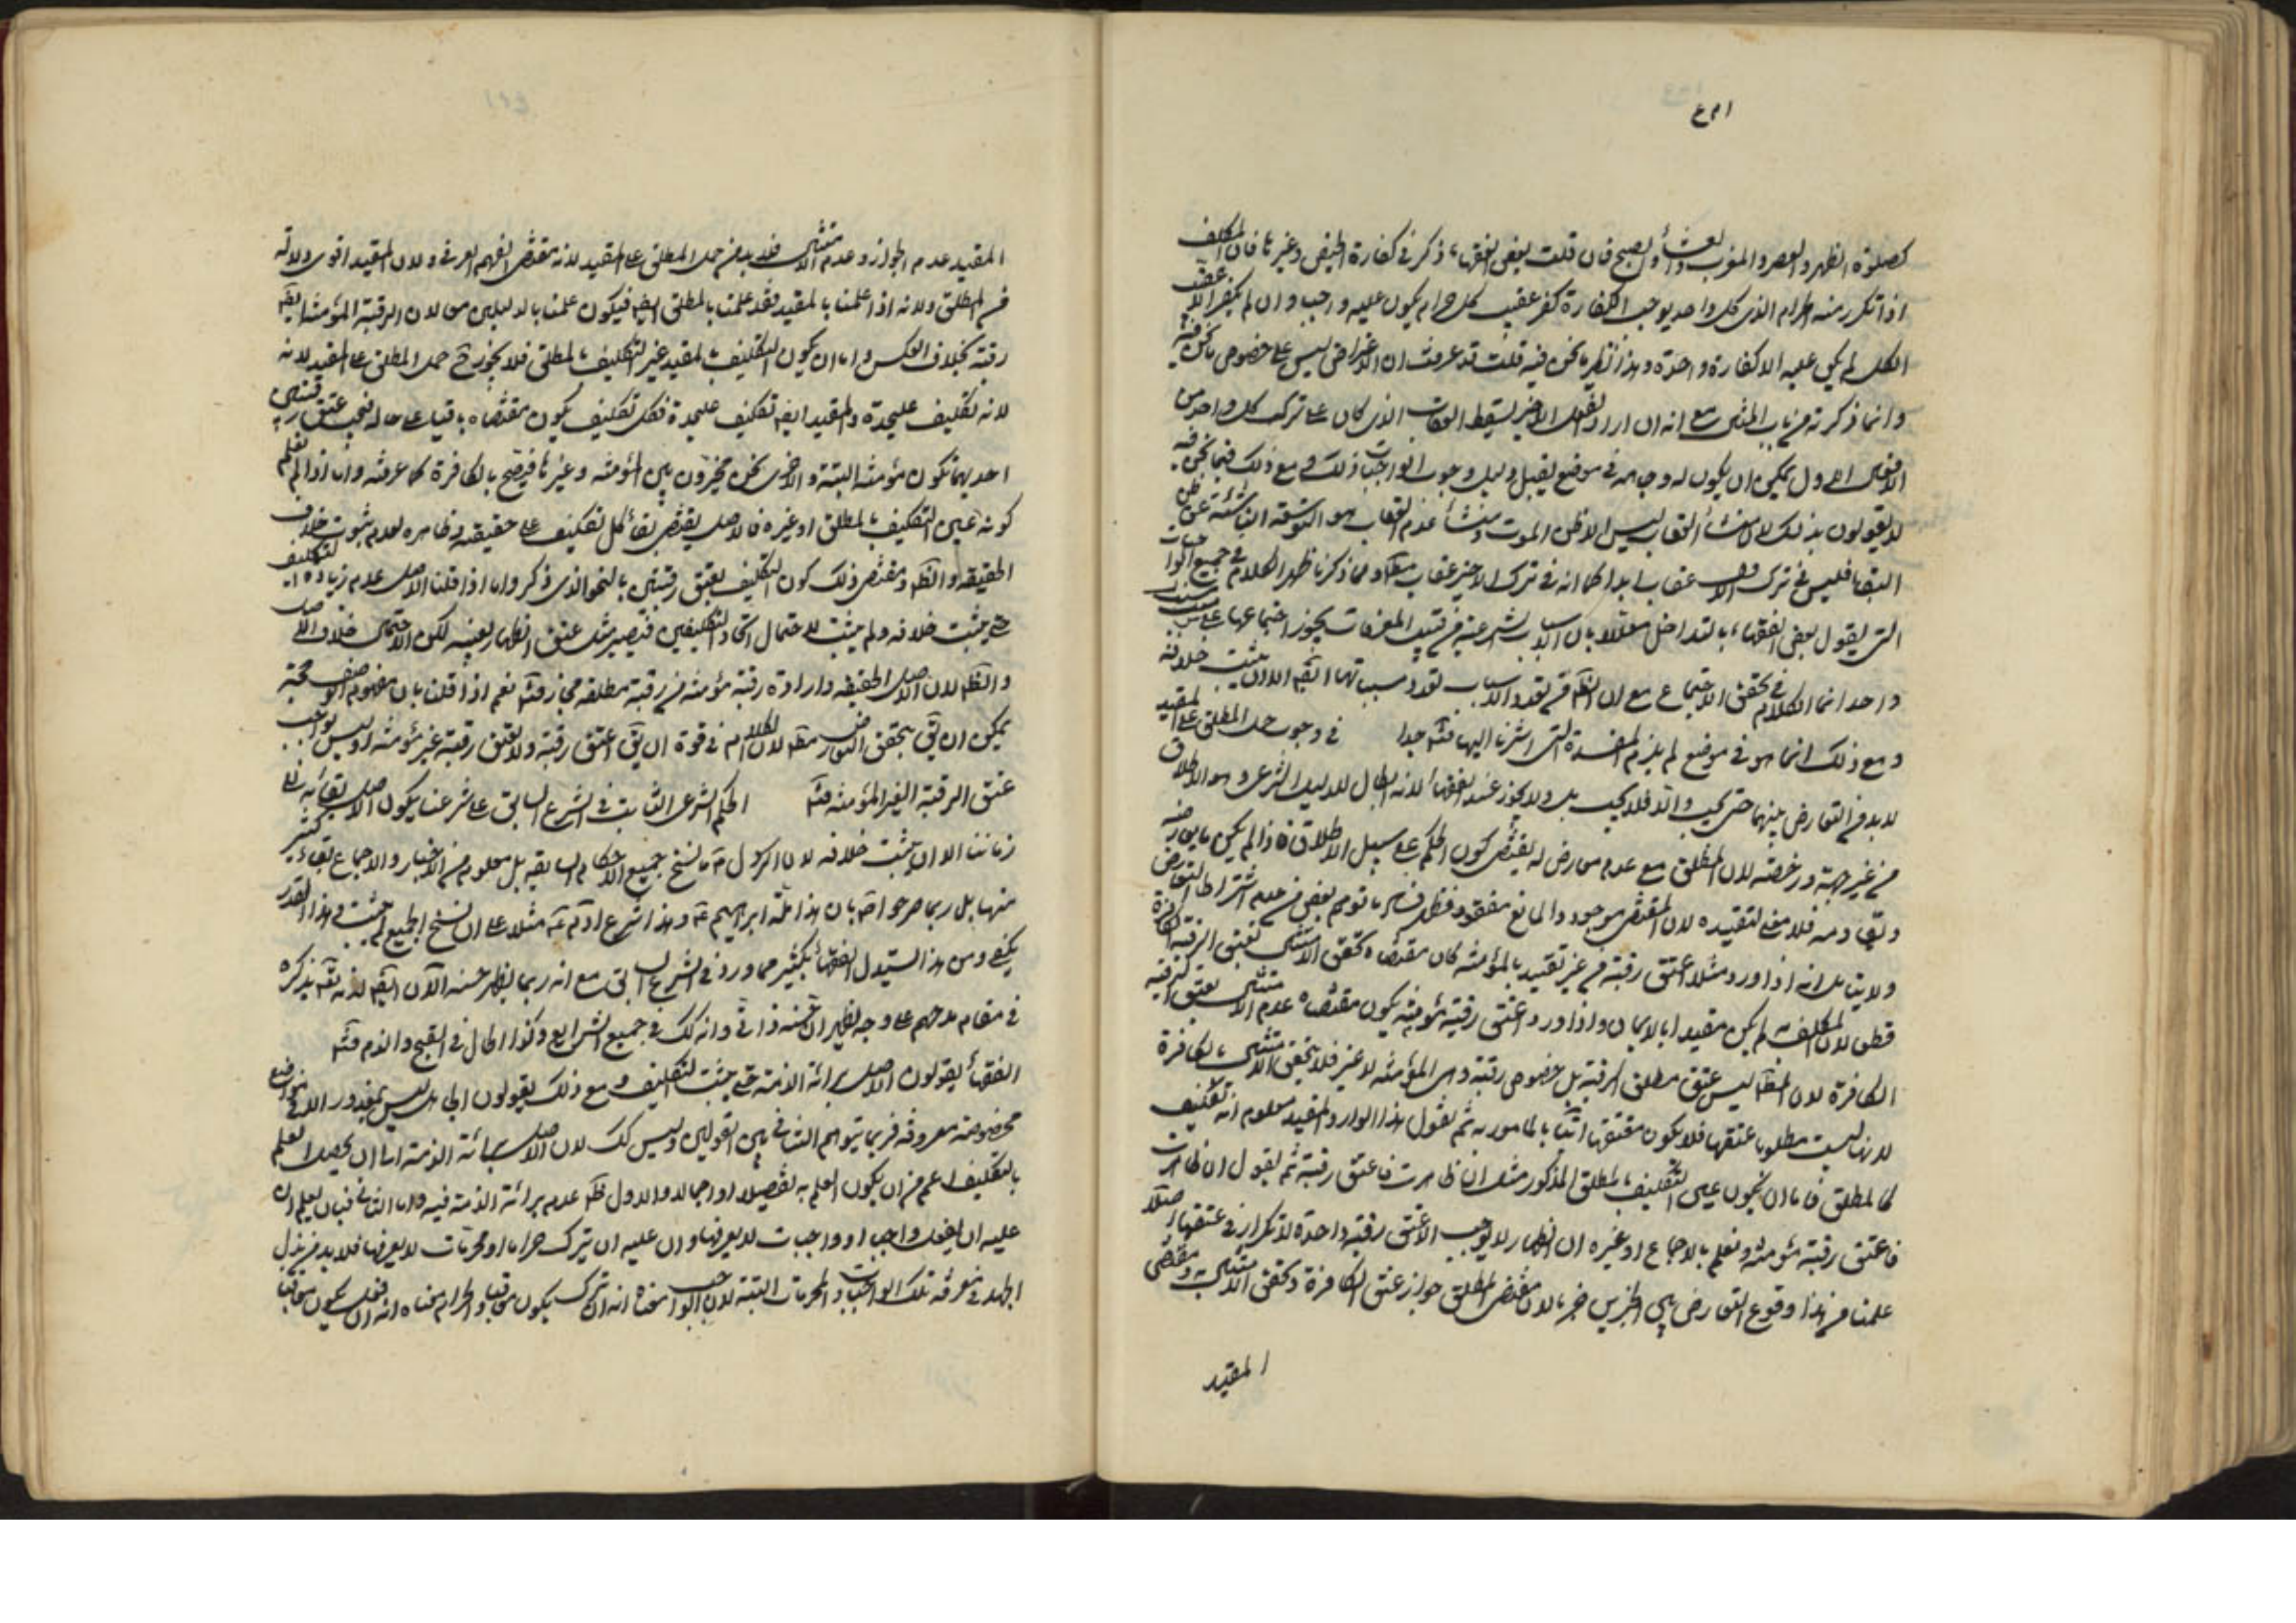 كصلوة الظهر والعصر والمغرب والعشاء والصبح فان قلت بعض الفقهاء ذكر في كفارة الحيض وغيرها فان المكلف
اذا تكرر منه الحرام الذي كل واحد يوجب الكفارة كفر عقيب كل حرام يكون عليه واجب وان لم يكفر الا عقيب
الكل لم يكن عليه الا كفارة واحدة وهذا نظير ما نحن فيه قلت قد عرفت ان الاغراض ليس على خصوص ما نحن فيه
وانما ذكرته من باب المثال مع انه ان اراد الفعل الاخير يسقط العقاب الذي كان على ترك كل واحد من
الافعال الاول يمكن ان يكون له وجه في موضع يقبل دليل وجوب الواجبات ذلك ومع ذلك فيما نحن فيه
لا يقولون بذلك لان منشأ العقاب ليس الا ظن الموت ومنشأ عدم العقاب هو التوسعة الناشئة عن ظن
البقاء فليس في ترك الاول عقاب ابدا كما انه في ترك الاخير عقاب ومما ذكرنا ظهر الكلام في جميع الواجبات
التي يقول بعض الفقهاء بالتداخل معللا بان الاسباب الشرعية من قبيل المعرفات يجوز اجتماعها على مسبب
واحد انما الكلام في تحقق الاجتماع مع ان تعدد الاسباب تعدد مسبباتها الا ان يثبت خلافه
ومع ذلك انما هو في موضع لم يلزم المفسدة التي اشرنا اليها جدا في وجوب حمل المطلق على المقيد
لا بد من التعارض بينهما حتى يجب والا فلا يجب بل ولا يجوز عند الفقهاء لانه ابطال للدليل الشرعي وهو الاطلاق
من غير جهة ورخصة لان المطلق مع عدم معارض له يقتضي كون الحكم على سبيل الاطلاق فاذا لم يكن ما يعارضه
ويقاومه فلا معنى لتقييده لان المقتضي موجود والمانع مفقود فظهر فساد ما توهم بعض من عدم اشتراط التعارض
ولا يتأمل انه اذا ورد مثلا اعتق رقبة من غير تقييد بالمؤمنة كان مقتضاه تحقق الامتثال بعتق الرقبة الكافرة
قطعا لان المكلف به لم يكن مقيدا بالايمان واذا ورد اعتق رقبة مؤمنة يكون مقتضاه عدم الامتثال بعتق الرقبة
الكافرة لان ليس عتق مطلق الرقبة بل خصوص رقبة وهي المؤمنة لا غير فلا يتحقق الامتثال بالكافرة
لانها ليست مطلوبا عتقها فلا يكون معتقها آتيا بالمأمور به ثم نقول هذا الوارد المقيد معلوم انه تكليف
كالمطلق فاما ان يكون عين التكليف بالمطلق المذكور مثل ان ظاهرت فاعتق رقبة ثم يقول ان ظاهرت
فاعتق رقبة مؤمنة ونعلم بالاجماع او غيره ان الظهار لا يوجب الا عتق رقبة واحدة لا تكرار في عتقها اصلا
علمنا من هذا وقوع التعارض بين الخبرين جزما لان مقتضى المطلق جواز عتق الكافرة وتحقق الامتثال به ومقتضى
المقيد
المقيد عدم الجواز وعدم الامتثال فلا بد من حمل المطلق على المقيد لانه مقتضى الفهم العرفي ولان المقيد اقوى دلالة
من المطلق ولانه اذا عملنا بالمقيد فقد عملنا بالمطلق ايضا فيكون عملنا بالدليلين معا لان الرقبة المؤمنة ايضا
رقبة بخلاف العكس واما ان يكون التكليف بالمقيد غير التكليف بالمطلق فلا يجوز ح حمل المطلق على المقيد لانه
لانه تكليف عليحدة والمقيد ايضا تكليف عليحدة فكل تكليف يكون مقتضاه باقيا على حاله فيجب عتق رقبتين
احديهما تكون مؤمنة البتة والاخرى نحن مخيرون بين المؤمنة وغيرها فيصح بالكافرة كما عرفت واما اذا لم نعلم
كونه عين التكليف بالمطلق او غيره فالاصل يقتضي بقاء كل تكليف على حقيقته وظاهره لعدم ثبوت خلاف
الحقيقة والظاهر ومقتضى ذلك كون التكليف بعتق رقبتين بالنحو الذي ذكر واما اذا قلنا الاصل عدم زيادة التكليف
حتى يثبت خلافه ولم يثبت لاحتمال اتحاد التكليفين فيصير مثل عتق الظهار بعينه لكن الاحتمال خلاف الاصل
والظاهر لان الاصل الحقيقة وارادة رقبة مؤمنة من رقبة مطلقة مجاز نعم اذا قلنا بان مفهوم الوصف حجة
يمكن ان يق بتحقق التعارض لان الكلام في قوة ان يق اعتق رقبة ولا تعتق رقبة غير مؤمنة او ليس بواجب
عتق الرقبة الغير المؤمنة الحكم الشرعي الثابت في الشرع السابق على شرعنا يكون الاصل بقائه في
زماننا الا ان يثبت خلافه لان الرسول ص ما نسخ جميع الاحكام السابقة بل معلوم من الاخبار والاجماع بقاء كثير
منها بل ربما صرحوا بان هذا ملة ابراهيم ع وهذا شرع آدم ع مثلا على ان نسخ الجميع لم يثبت وهذا القدر
يكفي ومن هذا استدل الفقهاء بكثير مما ورد في الشرع السابق مع انه ربما يظهر حسنه الآن ايضا لانه تعالى يذكره
في مقام مدحهم على وجه يظهر ان حسنه ذاتي وانه كك في جميع الشرايع وكذا الحال في القبح والذم
الفقهاء يقولون الاصل برائة الذمة حتى يثبت التكليف ومع ذلك يقولون الجاهل ليس بمعذور الا في مواضع
مخصوصة معروفة فربما يتوهم التنافي بين القولين وليس كك لان الاصل برائة الذمة الى ان يحصل العلم
بالتكليف اعم من ان يكون العلم به تفصيلا او اجمالا والاول ظاهر عدم برائة الذمة فيه واما الثاني فبان يعلم ان
عليه ان يفعل واجبا او واجبات لا يعرفها وان عليه ان يترك حراما او محرمات لا يعرفها فلا بد من بذل
الجهد في معرفة تلك الواجبات والمحرمات البتة لان الواجب معناه انه ان ترك يكون معاقبا والحرام معناه انه ان فعل يكون معاقبا